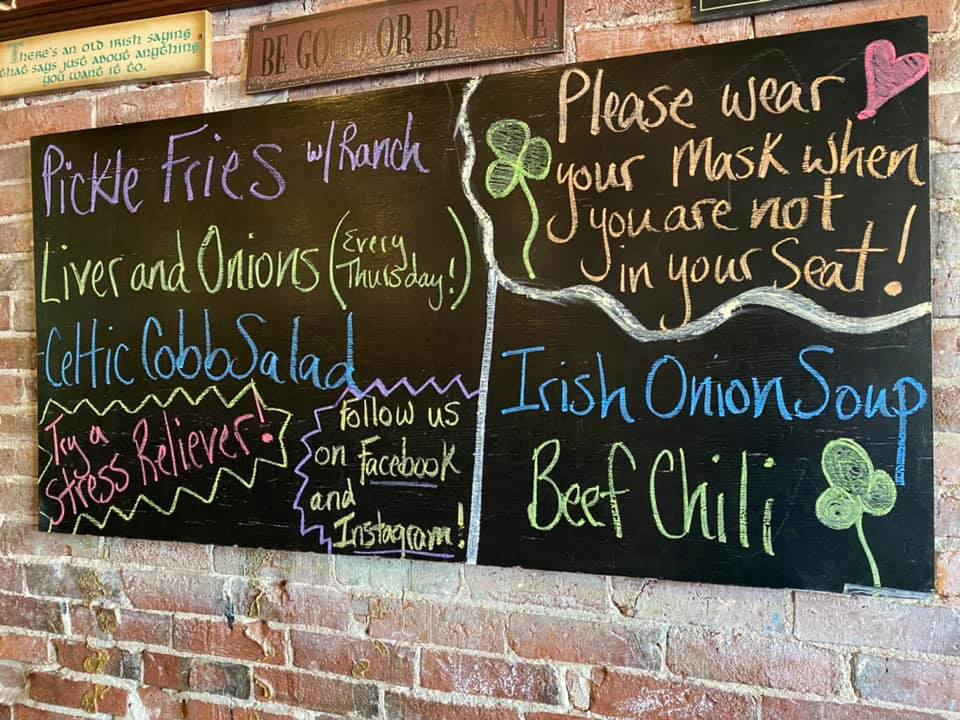 There's an old Irish saying
that says just about anything
you want it to.
BE GOOD OR BE GONE
Pickle Fries w/Ranch
Liver and Onions (Every Thursday!)
Celtic Cobb Salad
Try a
Stress Reliever!
Follow us
on Facebook
and
Instagram!
Please wear
your Mask when
you are not
in your Seat!
Irish Onion Soup
Beef Chili